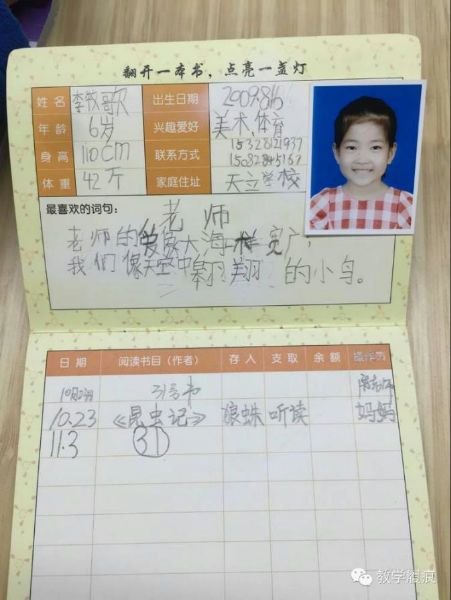 翻开一本书，点亮一盏灯
姓名 李牧歌 出生日期 2009.8.16
年龄 6岁 兴趣爱好 美术,体育
身高 110cm 联系方式
体重 42斤 家庭住址 天立学校
最喜欢的词句：
老师
老师的爱像大海一样宽广，
我们像天空中翱翔的小鸟。
日期 阅读书目（作者） 存入 支取 余额 操作员
31号书
10.23 《昆虫记》 狼蛛 听读 妈妈
11.3 31
教学独痕